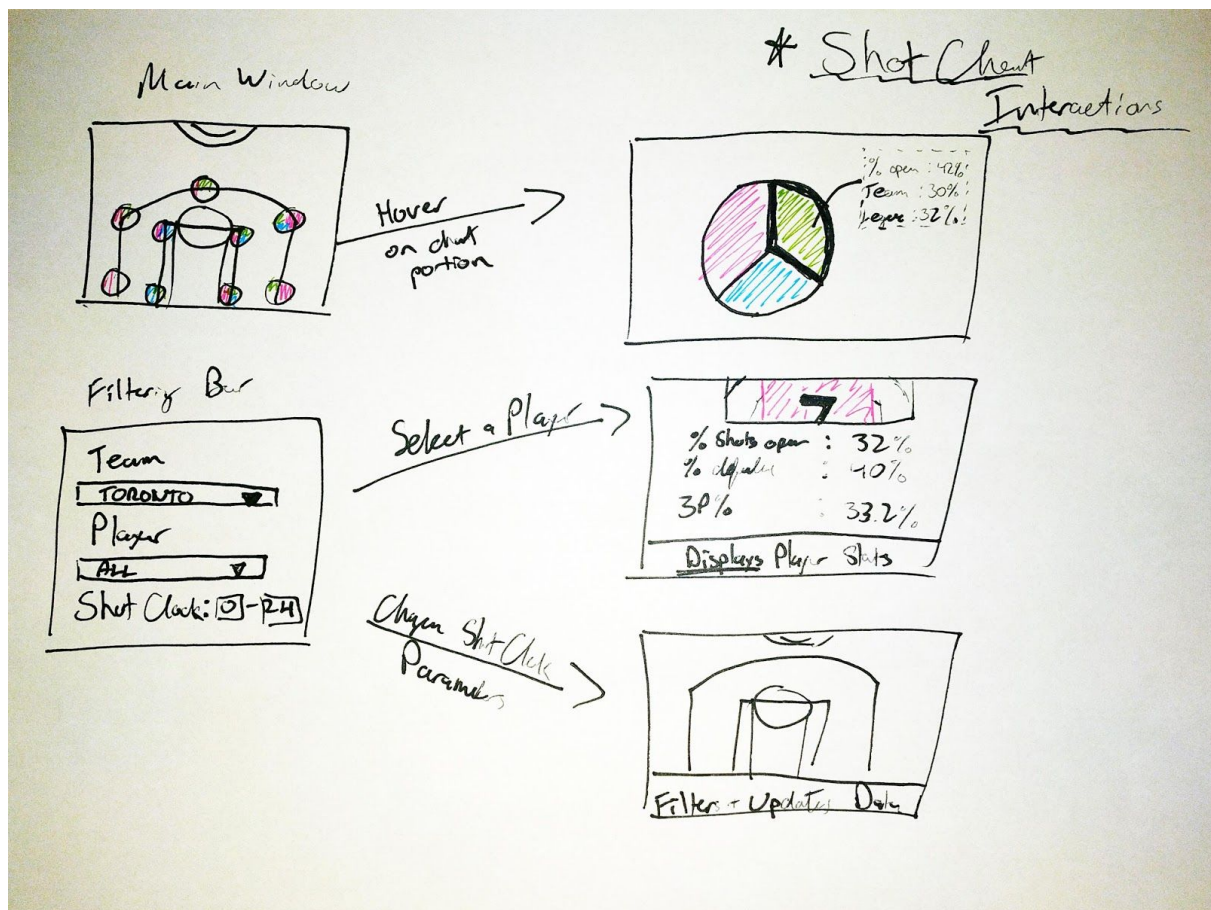 * Shot Chart
Interactions
Main Window
Hover
on chart
portion
% open : 42%
Team : 30%
League : 32%
Filtering Bar
Team
TORONTO
Player
ALL
Shot Clock: 0 - 24
Select a Player
7
% Shots open : 32%
% : 40%
3P% : 33.2%
Displays Player Stats
Shot Clock
Parameters
Filters + Updates Data